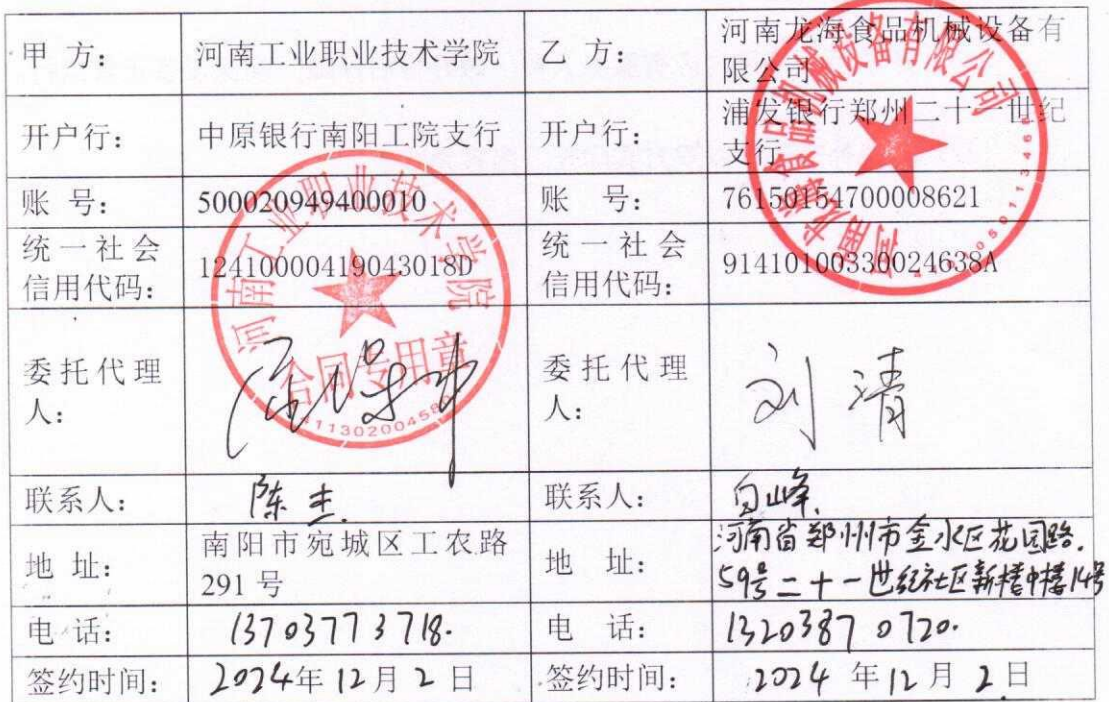 甲 方： 河南工业职业技术学院 乙 方： 河南龙海食品机械设备有
限公司
开户行： 中原银行南阳工院支行 开户行： 浦发银行郑州二十一世纪
支行
账 号： 500020949400010 账 号： 76150154700008621
统一社会
信用代码： 12410000419043018D 统一社会
信用代码： 91410100330024638A
委托代理
人： 委托代理
人： 刘清
联系人： 陈杰 联系人： 白峰
地 址： 南阳市宛城区工农路
291 号 地 址： 河南省郑州市金水区花园路
59号二十一世纪社区新楼中楼14号
电 话： 13703773718. 电 话： 13203870720.
签约时间： 2024年12月2日 签约时间： 2024年12月2日
河南工业职业技术学院
合同专用章
河南龙海食品机械设备有限公司